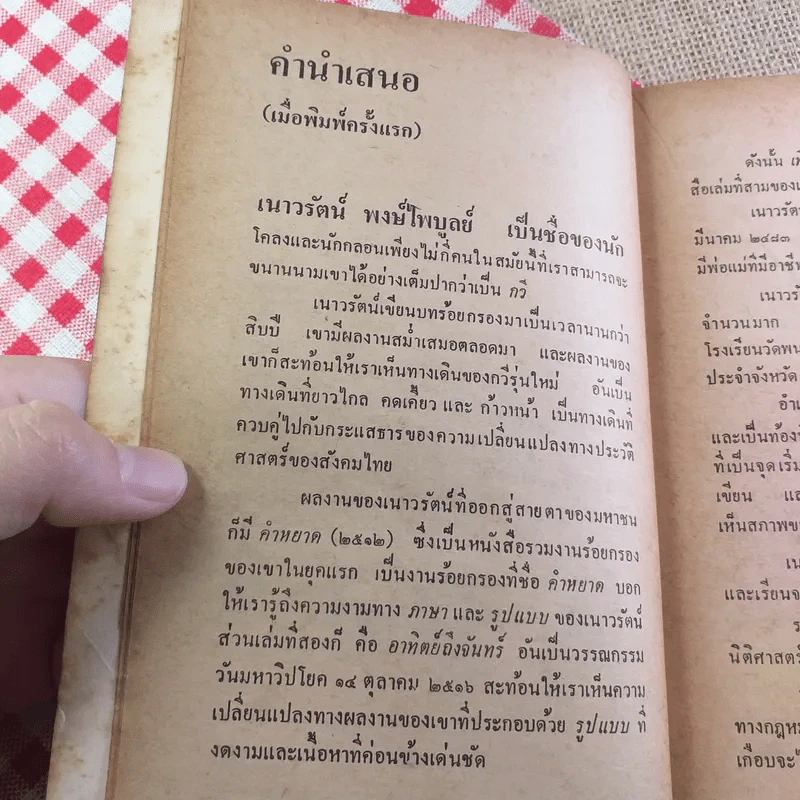 คำนำเสนอ
(เมื่อพิมพ์ครั้งแรก)
เนาวรัตน์ พงษ์ไพบูลย์ เป็นชื่อของนัก
โคลงและนักกลอนเพียงไม่กี่คนในสมัยนี้ที่เราสามารถจะ
ขนานนามเขาได้อย่างเต็มปากว่าเป็น กวี
เนาวรัตน์เขียนบทร้อยกรองมาเป็นเวลานานกว่า
สิบปี เขามีผลงานสม่ำเสมอตลอดมา และผลงานของ
เขาก็สะท้อนให้เราเห็นทางเดินของกวีรุ่นใหม่ อันเป็น
ทางเดินที่ยาวไกล คดเคี้ยว และ ก้าวหน้า เป็นทางเดินที่
ควบคู่ไปกับกระแสธารของความเปลี่ยนแปลงทางประวัติ
ศาสตร์ของสังคมไทย
ผลงานของเนาวรัตน์ที่ออกสู่สายตาของมหาชน
ก็มี คำหยาด (๒๕๑๒) ซึ่งเป็นหนังสือรวมงานร้อยกรอง
ของเขาในยุคแรก เป็นงานร้อยกรองที่ชื่อ คำหยาด บอก
ให้เรารู้ถึงความงามทาง ภาษา และ รูปแบบ ของเนาวรัตน์
ส่วนเล่มที่สองก็ คือ อาทิตย์ถึงจันทร์ อันเป็นวรรณกรรม
วันมหาวิปโยค ๑๔ ตุลาคม ๒๕๑๖ สะท้อนให้เราเห็นความ
เปลี่ยนแปลงทางผลงานของเขาที่ประกอบด้วย รูปแบบ ที่
งดงามและเนื้อหาที่ค่อนข้างเด่นชัด
ดังนั้น
สือเล่มที่สามของเ
เนาวรัต
มีนาคม ๒๔๘๓
มีพ่อแม่ที่มีอาชีพ
เนาวรั
จำนวนมาก
โรงเรียนวัดพน
ประจำจังหวัด
อำเ
และเป็นท้องถิ่
ที่เป็นจุดเริ่ม
เขียน แล
เห็นสภาพข
เน
และเรียนจ
ร
นิติศาสตร์
ทางกฎหม
เกือบจะไ